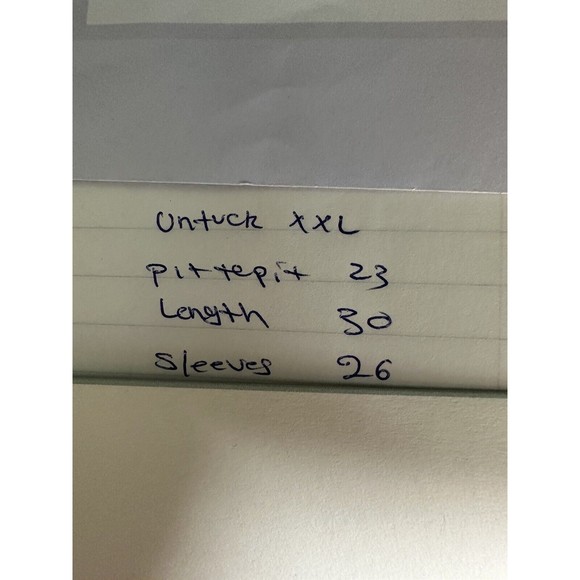 Untuck XXL
pit tepit 23
Length 30
Sleeves 26